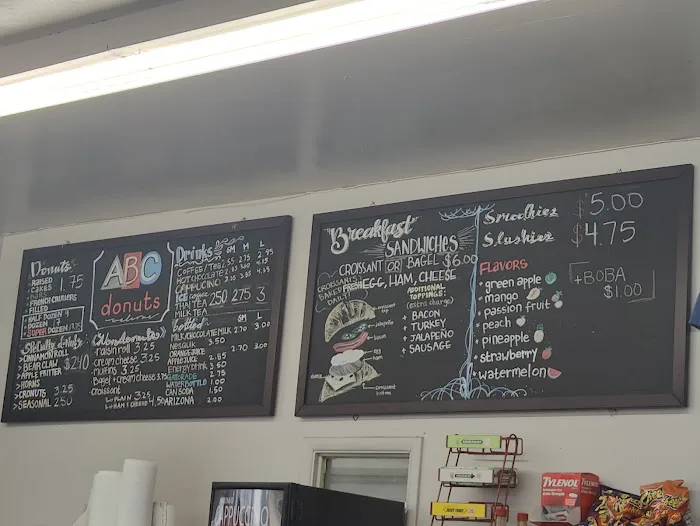 Donuts
RAISED 1.75
CAKES
FRENCH CRULLERS
FILLED
HALF DOZEN 9
DOZEN 17
SUPER DOZEN
Specialty donuts
> CINNAMON ROLL
> BEAR CLAW $2.40
> APPLE FRITTER
> HORNS
> CRONUTS 3.25
> SEASONAL 2.50
ABC
donuts
raisin roll 3.25
cream cheese 3.25
Muffins 3.25
Bagel + cream cheese 3.75
croissant
PLAIN 3.25
HAM & CHEESE 4.50
Drinks
SM M L
COFFEE/TEA 2.55 2.75 2.95
HOT CHOCOLATE
CAPPUCCINO
ICE coffee
THAI TEA 250 275 3
MILK TEA
Bottled
SM M L
MILK/CHOCOLATE MILK 2.70 3.00
NESQUIK 3.50
ORANGE JUICE 2.70 3.00
APPLE JUICE 2.85
ENERGY DRINK 3.60
GATORADE 2.75
WATER BOTTLE 1.00
CAN SODA 1.50
ARIZONA 2.00
Breakfast
SANDWICHES
CROISSANT OR BAGEL $6.00
EGG, HAM, CHEESE
CROISSANTS
BAKED FRESH
DAILY!
ADDITIONAL
TOPPINGS:
(extra charge)
+ BACON
+ TURKEY
+ JALAPEÑO
+ SAUSAGE
croissant
top
jalapeño
bacon
egg
ham
cheese
croissant
bottom
Smoothies $5.00
Slushies $4.75
FLAVORS
• green apple
• mango
• passion fruit
• peach
• pineapple
• strawberry
• watermelon
+BOBA
$1.00
TYLENOL